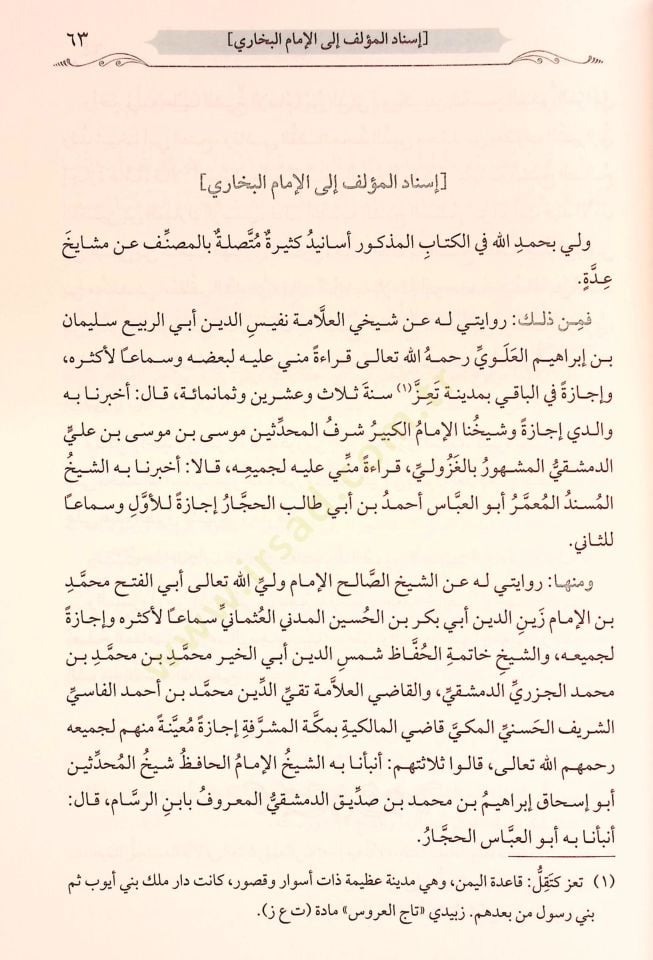 [إسناد المؤلف إلى الإمام البخاري]
٦٣
[إسناد المؤلف إلى الإمام البخاري]
ولي بحمدِ الله في الكتابِ المذكور أسانيدُ كثيرةٌ مُتَّصلةٌ بالمصنِّف عن مشايخَ
عِدَّةٍ.
فمِن ذلك: روايتي له عن شيخي العلَّامة نفيسِ الدين أبي الربيع سليمان
بن إبراهيم العَلَويِّ رحمهُ الله تعالى قراءةً مني عليه لبعضه وسماعًا لأكثره،
وإجازةً في الباقي بمدينة تَعِزَّ(١) سنةَ ثلاث وعشرين وثمانمائة، قال: أخبرنا به
والدي إجازةً وشيخُنا الإمامُ الكبيرُ شرفُ المحدِّثين موسى بن موسى بن عليٍّ
الدمشقيُّ المشهورُ بالغَزُوليِّ، قراءةً منِّي عليه لجميعِه، قالا: أخبرنا به الشيخُ
المُسندُ المُعمَّرُ أبو العبَّاس أحمدُ بن أبي طالب الحجَّارُ إجازةً للأوَّلِ وسماعًا
للثاني.
ومنها: روايتي له عن الشيخ الصَّالح الإمام وليِّ الله تعالى أبي الفتح محمَّدِ
بن الإمام زَينِ الدين أبي بكر بن الحُسين المدني العُثمانيِّ سماعًا لأكثره وإجازةً
لجميعه، والشيخِ خاتمةِ الحُفَّاظ شمس الدين أبي الخير محمَّد بن محمَّد بن
محمد الجزريِّ الدمشقيِّ، والقاضي العلَّامة تقيِّ الدِّين محمَّد بن أحمد الفاسيِّ
الشريف الحَسنيِّ المكيِّ قاضي المالكيةِ بمكَّة المشرَّفةِ إجازةً مُعيَّنةً منهم لجميعه
رحمهم الله تعالى، قالوا ثلاثتهم: أنبأنا به الشيخُ الإمامُ الحافظُ شيخُ المُحدِّثين
أبو إسحاق إبراهيمُ بن محمد بن صدِّيق الدمشقيُّ المعروفُ بابنِ الرسَّام، قال:
أنبأنا به أبو العبَّاس الحجَّارُ.
(١) تعز كتَقِلُّ: قاعدة اليمن، وهي مدينة عظيمة ذات أسوار وقصور، كانت دار ملك بني أيوب ثم
بني رسول من بعدهم. زبيدي «تاج العروس» مادة (ت ع ز).
www.irsad.com.tr